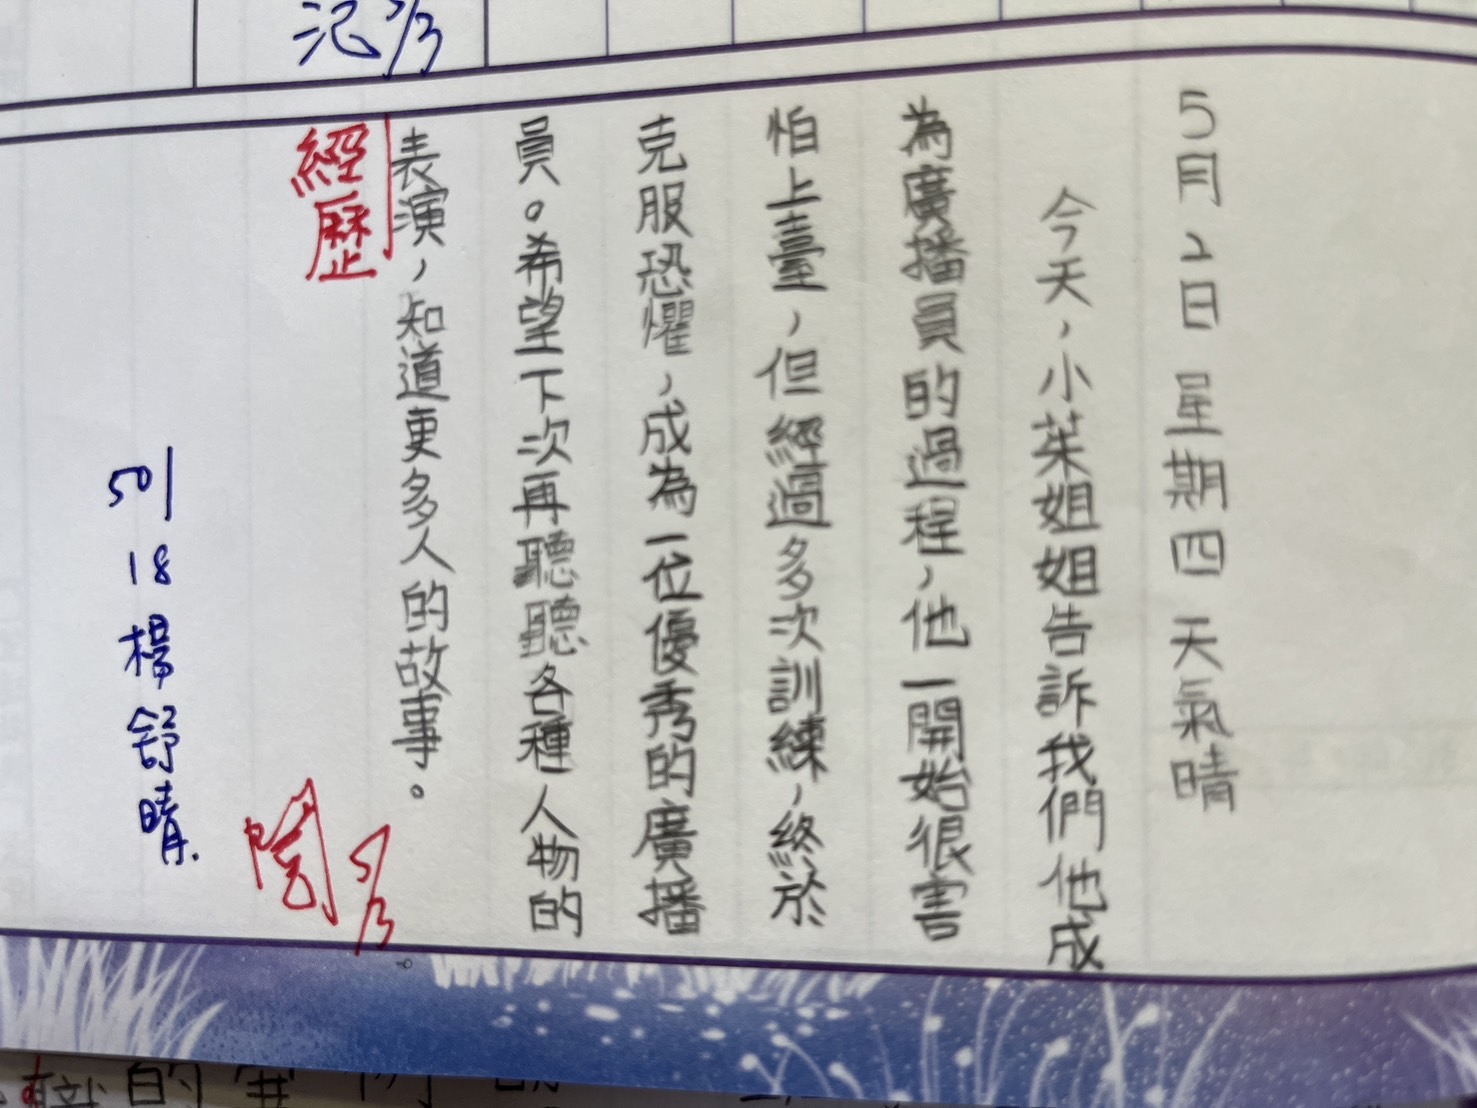 5月2日 星期四 天氣晴
今天，小茱姐姐告訴我們他成
為廣播員的過程，他一開始很害
怕上臺，但經過多次訓練，終於
克服恐懼，成為一位優秀的廣播
員。希望下次再聽聽各種人物的
表演，知道更多人的故事。
經歷
閱 5/3
501 18 楊舒晴.
5/3